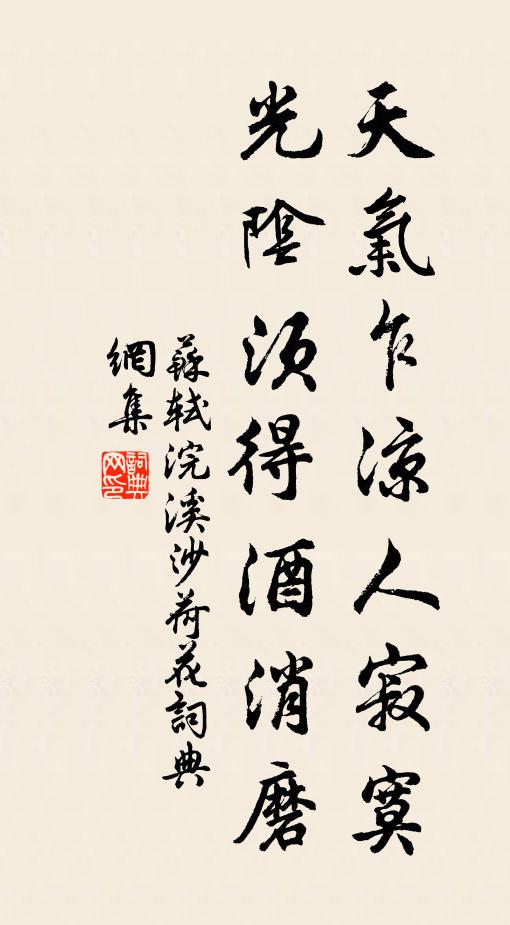 天氣乍涼人寂寞
光陰須得酒消磨
蘇軾浣溪沙荷花詞典
網集
詞典
网印